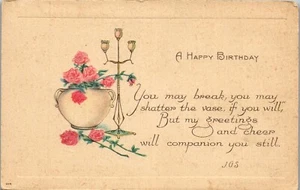 A Happy Birthday
You may break, you may
shatter the vase, if you will,
But my greetings
and cheer
will companion you still.